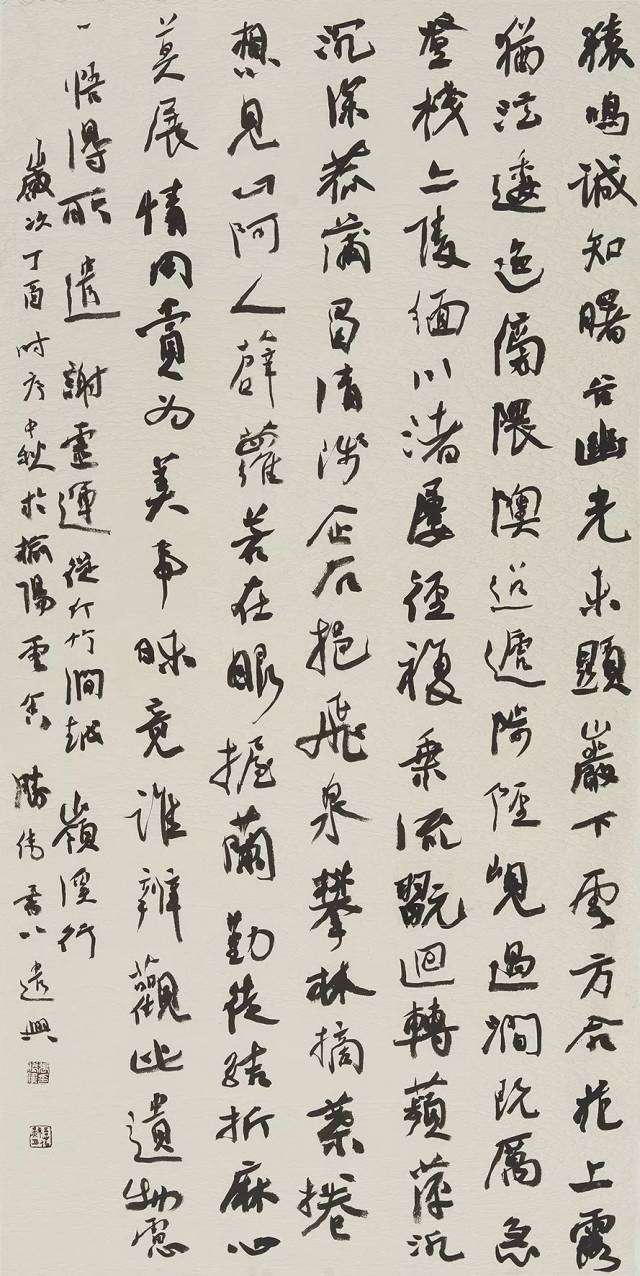 猿鳴誠知曙谷幽光未顯巖下雲方合花上露
猶泫逶迤傍隈隩迢遞陟陘峴過澗既厲急
登棧亦陵緬川渚屢徑復乘流翫迴轉蘋萍泛
沉深菰蒲冒清淺企石挹飛泉攀林摘葉捲
想見山阿人薜蘿若在眼握蘭勤徒結折麻心
莫展情用賞為美事昧竟誰辨觀此遺物慮
一悟得所遣 謝靈運從斤竹澗越嶺溪行
歲次丁酉時序中秋於陽雲勝偉書以遣興